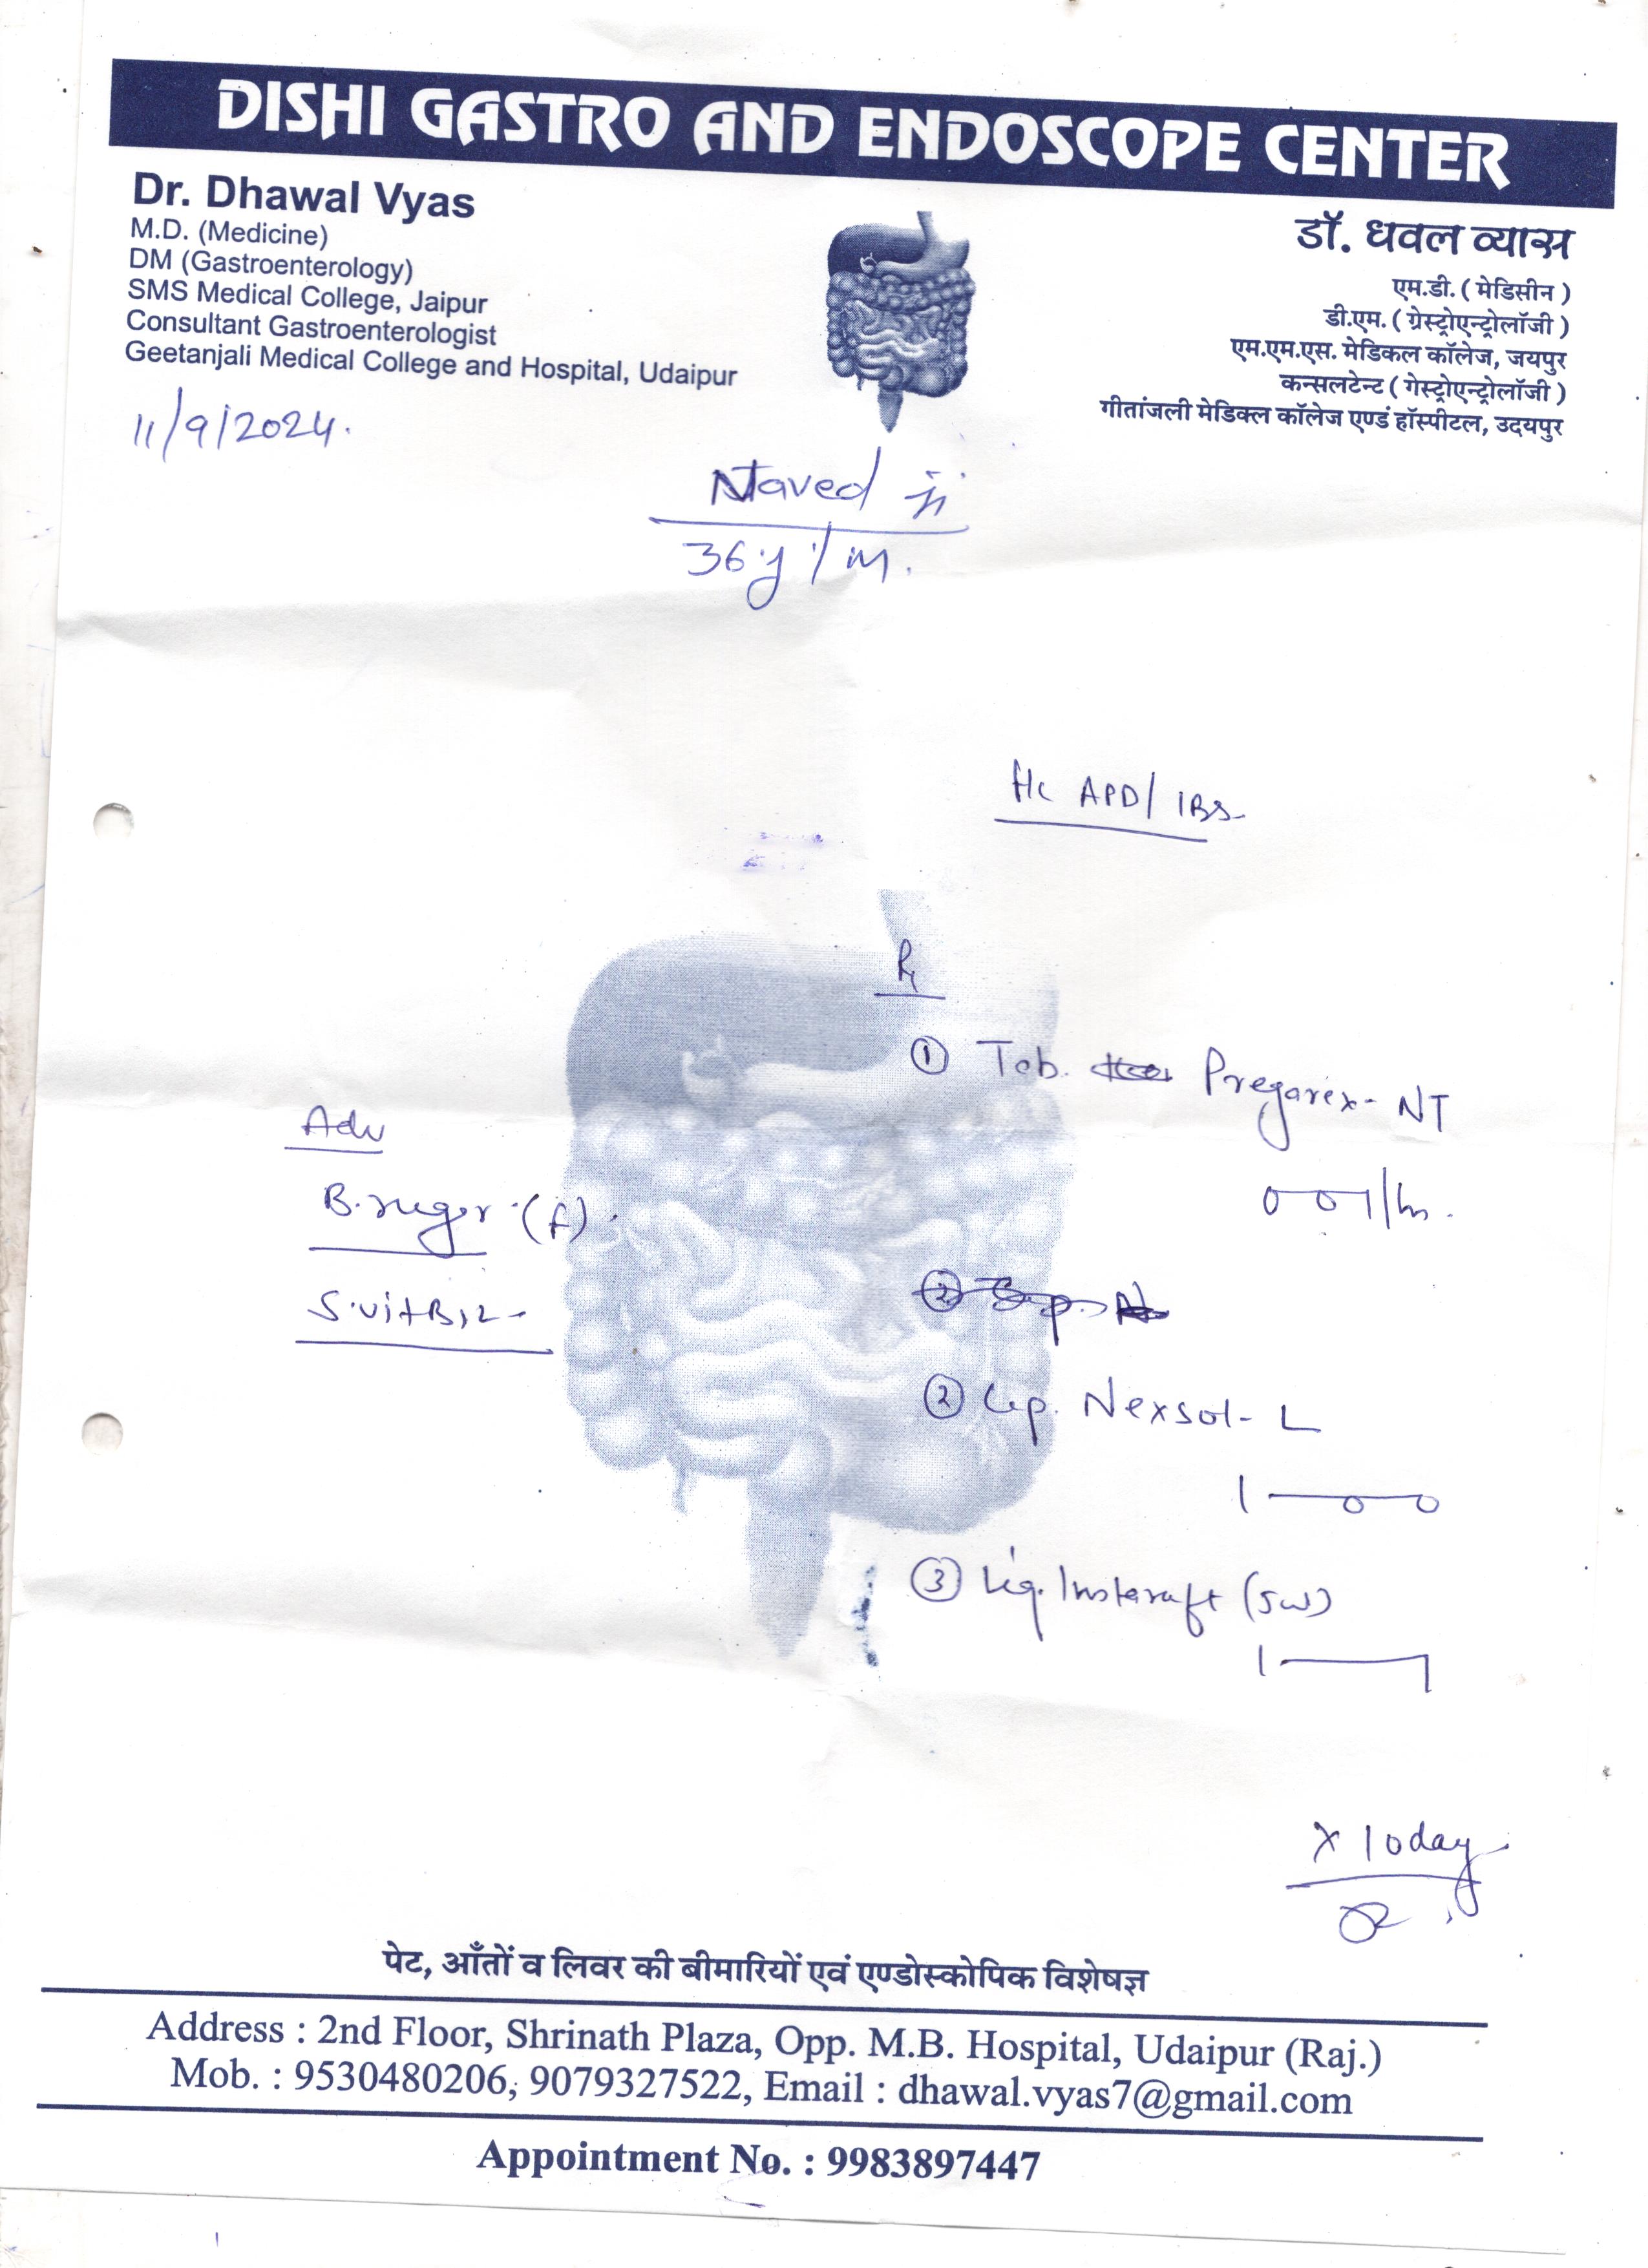 DISHI GASTRO AND ENDOSCOPE CENTER
Dr. Dhawal Vyas
M.D. (Medicine)
DM (Gastroenterology)
SMS Medical College, Jaipur
Consultant Gastroenterologist
Geetanjali Medical College and Hospital, Udaipur
डॉ. धवल व्यास
एम.डी. ( मेडिसीन )
डी.एम. ( ग्रेस्ट्रोएन्ट्रोलॉजी )
एम.एम.एस. मेडिकल कॉलेज, जयपुर
कन्सलटेन्ट ( गेस्ट्रोएन्ट्रोलॉजी )
गीतांजली मेडिक्ल कॉलेज एण्डं हॉस्पीटल, उदयपुर
11/9/2024.
Naved ji
36y/m.
APD/ IBS
Adv
B. sugar (f)
S. vit B12
R
① Tab. Pregarex- NT
0 0 1/hs.
② Cap. Nexsol- L
1 0 0
③ Liq. Instaraft (5w)
1 1
x 10 day
पेट, आँतों व लिवर की बीमारियों एवं एण्डोस्कोपिक विशेषज्ञ
Address : 2nd Floor, Shrinath Plaza, Opp. M.B. Hospital, Udaipur (Raj.)
Mob. : 9530480206, 9079327522, Email : dhawal.vyas7@gmail.com
Appointment No. : 9983897447